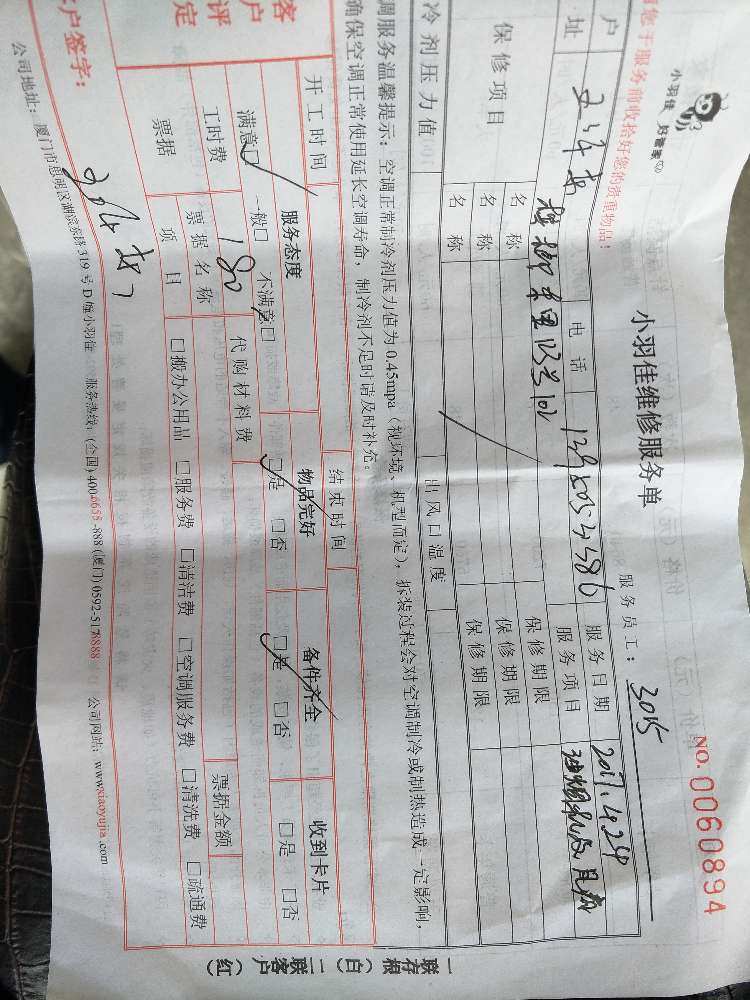 小羽佳 好管家
NO.0060894
小羽佳维修服务单
您于服务前收拾好您的贵重物品!
服务员工: 3015
户
电话
服务日期 2017.4.24
址
服务项目
保修项目
名称 保修期限
名称 保修期限
名称 保修期限
冷剂压力值
出风口温度
调服务温馨提示: 空调正常制冷剂压力值为0.45mpa (视环境、机型而定), 拆装过程会对空调制冷或制热造成一定影响,
确保空调正常使用延长空调寿命, 制冷剂不足时请及时补充。
开工时间 结束时间
客户评定
服务态度 物品完好 备件齐全 收到卡片
满意□ 一般□ 不满意□ □是 □否 □是 □否 □是 □否
工时费 180 代购材料费
票据 票据名称 票据金额
项目 □搬办公用品 □服务费 □清洁费 □空调服务费 □清洗费 □疏通费
客户签字:
公司地址: 厦门市思明区湖滨东路319号D幢小羽佳 服务热线: (全国) 400-6655-888 (厦门) 0592-5178888 公司网站: www.xiaoyujia.com
一联存根(白) 二联客户(红)